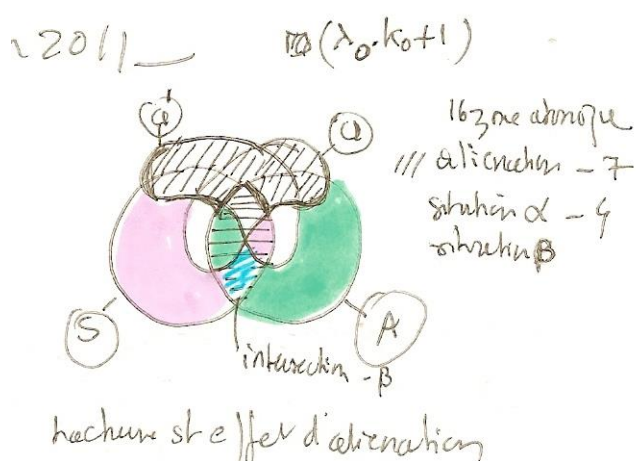 ~2011_
(λ0.k0+1)
a'
a
16 zone atomique
/// aliénation - 7
situation α - 4
situation β
S
A
intersection - β
hachure st effet d'aliénation